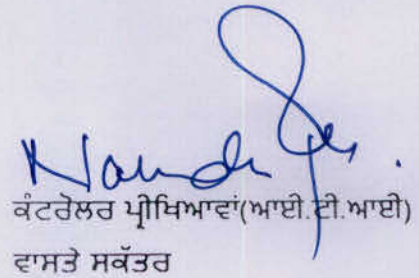 ਕੰਟਰੋਲਰ ਪ੍ਰੀਖਿਆਵਾਂ(ਆਈ.ਟੀ.ਆਈ)
ਵਾਸਤੇ ਸਕੱਤਰ